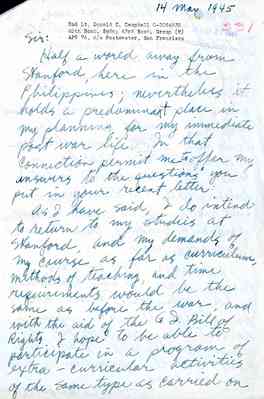 14 May 1945
2nd Lt. Donald T. Campbell
APO 74, c/o Postmaster, San Francisco
Sir:
Half a world away from
Stanford, here in the
Philippines; nevertheless it
holds a predominant place in
my planning for my immediate
post war life. In that
connection permit me to offer my
answers to the questions you
put in your recent letter.
As I have said, I do intend
to return to my studies at
Stanford, and my demands of
my course as far as curriculum,
methods of teaching, and time
requirements would be the
same as before the war, and
with the aid of the G I Bill of
Rights I hope to be able to
participate in a program of
extra-curricular activities
of the same type as carried on